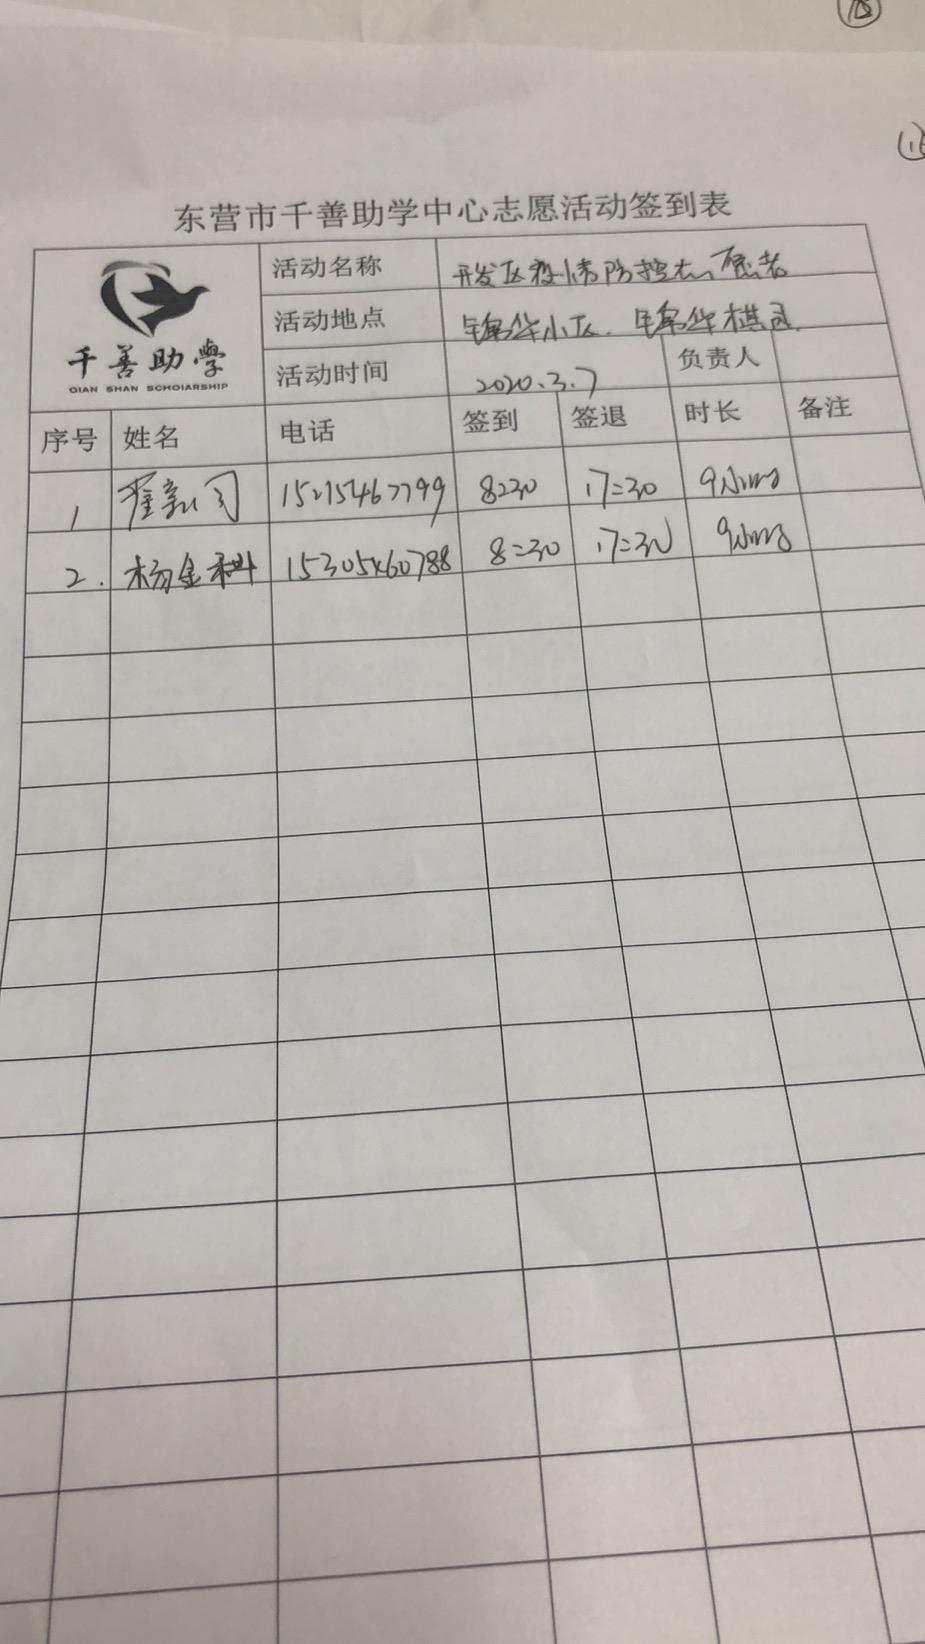 15
东营市千善助学中心志愿活动签到表
千善助学
QIAN SHAN SCHOIARSHIP
活动名称 开发区疫情防控志愿者
活动地点 锦华小区. 锦华棋园
活动时间 2020.3.7 负责人
序号 姓名 电话 签到 签退 时长 备注
1 15275467799 8:30 17:30 9小时
2. 杨金科 15305460788 8:30 17:30 9小时